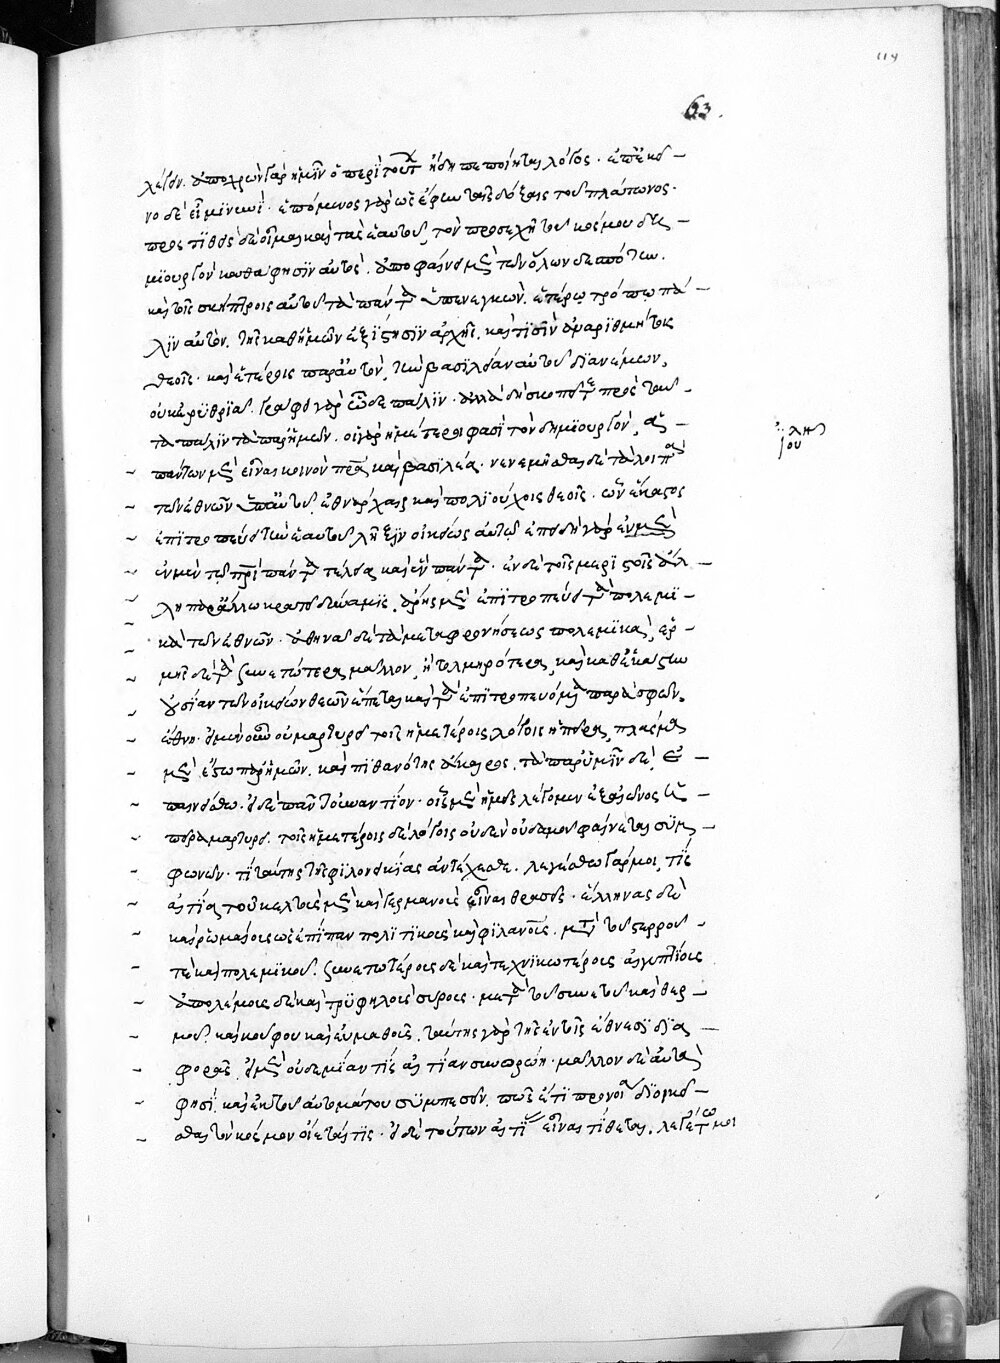 114
63.
λέγειν. ἀπολχρῶν γὰρ ἡμῖν ὁ περὶ τούτων ἤδη πεποίηται λόγος. ἐπ' ἐκεῖ-
νο δὲ εἶμι νυνί. ἑπόμενος γὰρ ὡς ἔφην ταῖς δόξαις τοῦ πλάτωνος.
προστίθησι δὲ οἶμαι καὶ τὰς ἑαυτοῦ, τὸν προσεχῆ τοῦ κόσμου δη-
μιουργὸν καθά φησιν αὐτὸς. ἀποφαίνει μὲν τῶν ὅλων δεσπότην.
καὶ τοῖς σκήπτροις αὐτοῦ τὰ πάντα ὑπεναγκών. ἑτέρῳ τρόπῳ πά-
λιν αὐτὸν. τῆς καθ' ἡμῶν ἐξίστησιν ἀρχῆς. καί τισιν ἀναριθμήτοις
θεοῖς. καὶ ἑτέροις παρ' αὐτὸν, τὴν βασιλείαν αὐτοῦ διανέμων.
οὐκ ἐρυθριᾷ. γράφει γὰρ ὧδε πάλιν. ἀλλὰ δὴ σκοπεῖτε πρὸς ταῦ-
τα πάλιν τὰ παρ' ἡμῶν. οἱ γὰρ ἡμέτεροι φασὶ τὸν δημιουργὸν, ἁ-
πάντων μὲν εἶναι κοινὸν πατέρα καὶ βασιλέα. νενεμῆσθαι δὲ τὰ λοιπὰ
τῶν ἐθνῶν ὑπ' αὐτοῦ, ἐθνάρχαις καὶ πολιούχοις θεοῖς. ὧν ἕκαστος
ἐπιτροπεύει τὴν ἑαυτοῦ λῆξιν οἰκείως αὐτῷ ἐπειδὴ γὰρ ἐν μὲν
ἐν μὲν τῷ πατρὶ πάντα τέλεια καὶ ἓν πάντα. ἐν δὲ τοῖς μεριστοῖς ἄλ-
λη παρ' ἄλλῳ κρατεῖ δύναμις. ἄρης μὲν ἐπιτροπεύει τὰ πολεμι-
κὰ τῶν ἐθνῶν. ἀθηνᾶ δὲ τὰ μετὰ φρονήσεως πολεμικὰ, ἑρ-
μῆς δὲ τὰ συνετώτερα μᾶλλον, ἢ τολμηρότερα, καὶ καθ' ἑκάστην
οὐσίαν τῶν οἰκείων θεῶν ἕπεται καὶ τὰ ἐπιτροπευόμενα παρὰ σφῶν
ἔθνη. εἰ μὲν οὖν οὐ μαρτυρεῖ τοῖς ἡμετέροις λόγοις ἡ πεῖρα, πλάσμα
μὲν ἔστω παρ' ἡμῶν. καὶ πιθανότης ἄκαιρος. τὰ παρ' ὑμῖν δὲ, ἐ-
παινείσθω. εἰ δὲ πᾶν τοὐναντίον. οἷς μὲν ἡμεῖς λέγομεν ἐξ αἰῶνος ἡ
πεῖρα μαρτυρεῖ. τοῖς ἡμετέροις δὲ λόγοις οὐδὲν οὐδαμοῦ φαίνεται σύμ-
φωνον. τί ταύτης τῆς φιλονεικίας ἀντέχεσθε. λεγέσθω γάρ μοι, τίς
αἰτία τοῦ κελτοὺς μὲν καὶ γερμανοὺς εἶναι θρασεῖς. ἕλληνας δὲ
καὶ ῥωμαίους ὡς ἐπίπαν πολιτικοὺς καὶ φιλανθρώπους. μετὰ τοῦ στερροῦ
τὲ καὶ πολεμικοῦ. συνετωτέρους δὲ καὶ τεχνικωτέρους αἰγυπτίους
ἀπολέμους δὲ καὶ τρυφηλοὺς σύρους. μετὰ τοῦ συνετοῦ καὶ θερ-
μοῦ καὶ κούφου καὶ εὐμαθοῦς. ταύτης γὰρ τῆς ἐν τοῖς ἔθνεσι δια-
φορᾶς, εἰ μὲν οὐδεμίαν τίς αἰτίαν συνορώη. μᾶλλον δὲ αὐτά
φησί, καὶ ἐκ τοῦ αὐτομάτου συμπεσεῖν. πῶς ἔτι προνοίᾳ διοικεῖ-
σθαι τὸν κόσμον οἴεταί τις. εἰ δὲ τούτων αἰτίαν εἶναι τίθεται. λεγέτω μοι